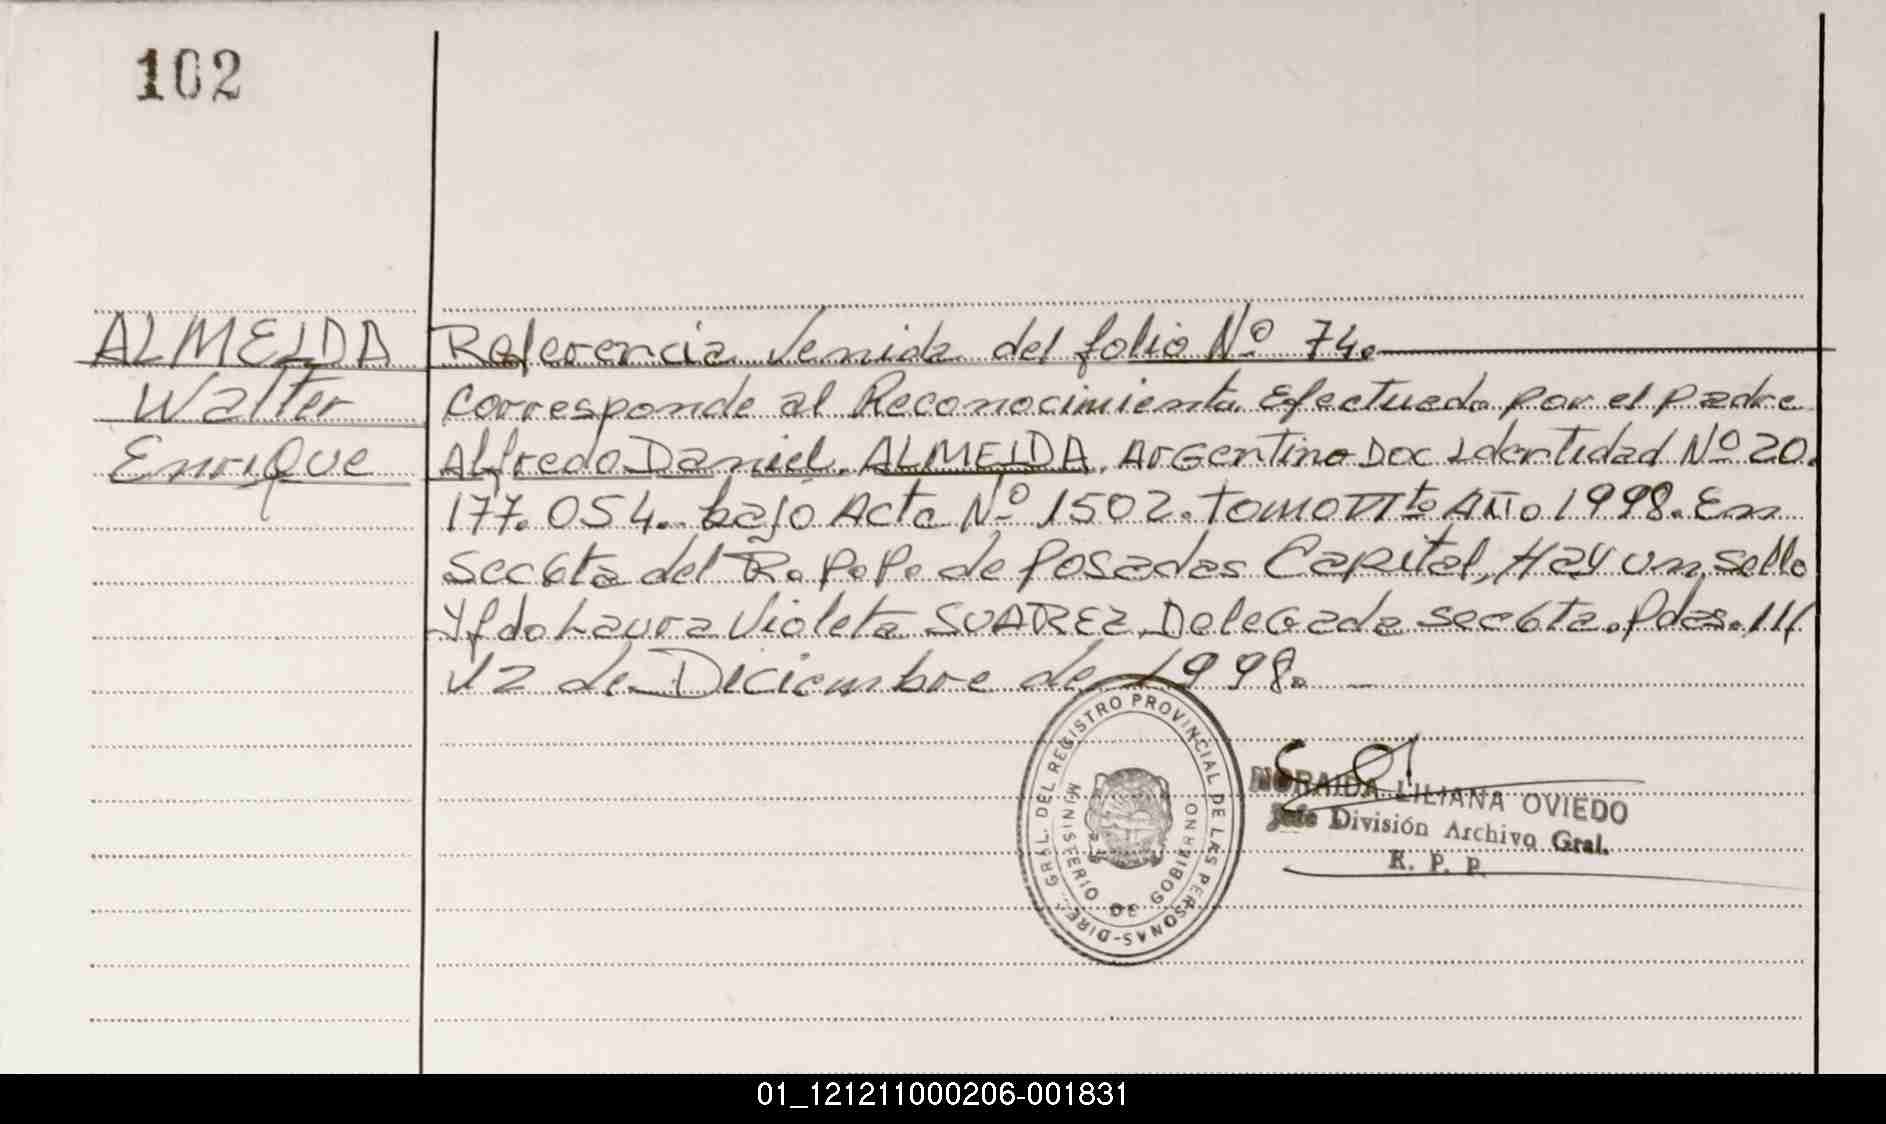 102
ALMEIDA
Walter
Enrique
Referencia Venida del folio Nº 74.
Corresponde al Reconocimiento Efectuado por el padre
Alfredo Daniel ALMEIDA, Argentino Doc Identidad Nº 20.
177.054. bajo Acta Nº 1502. Tomo VIto Año 1998. En
Sec 6ta del R.P.P. de Posadas Capital, Hay un sello
Y fdo Laura Violeta SUAREZ Delegada Sec 6ta. Pdas.
12 de Diciembre de 1998.
DIREC. GRAL. DEL REGISTRO PROVINCIAL DE LAS PERSONAS-
MINISTERIO DE GOBIERNO
NORAIDA LILIANA OVIEDO
Jefe División Archivo Gral.
R. P. P.
01_121211000206-001831